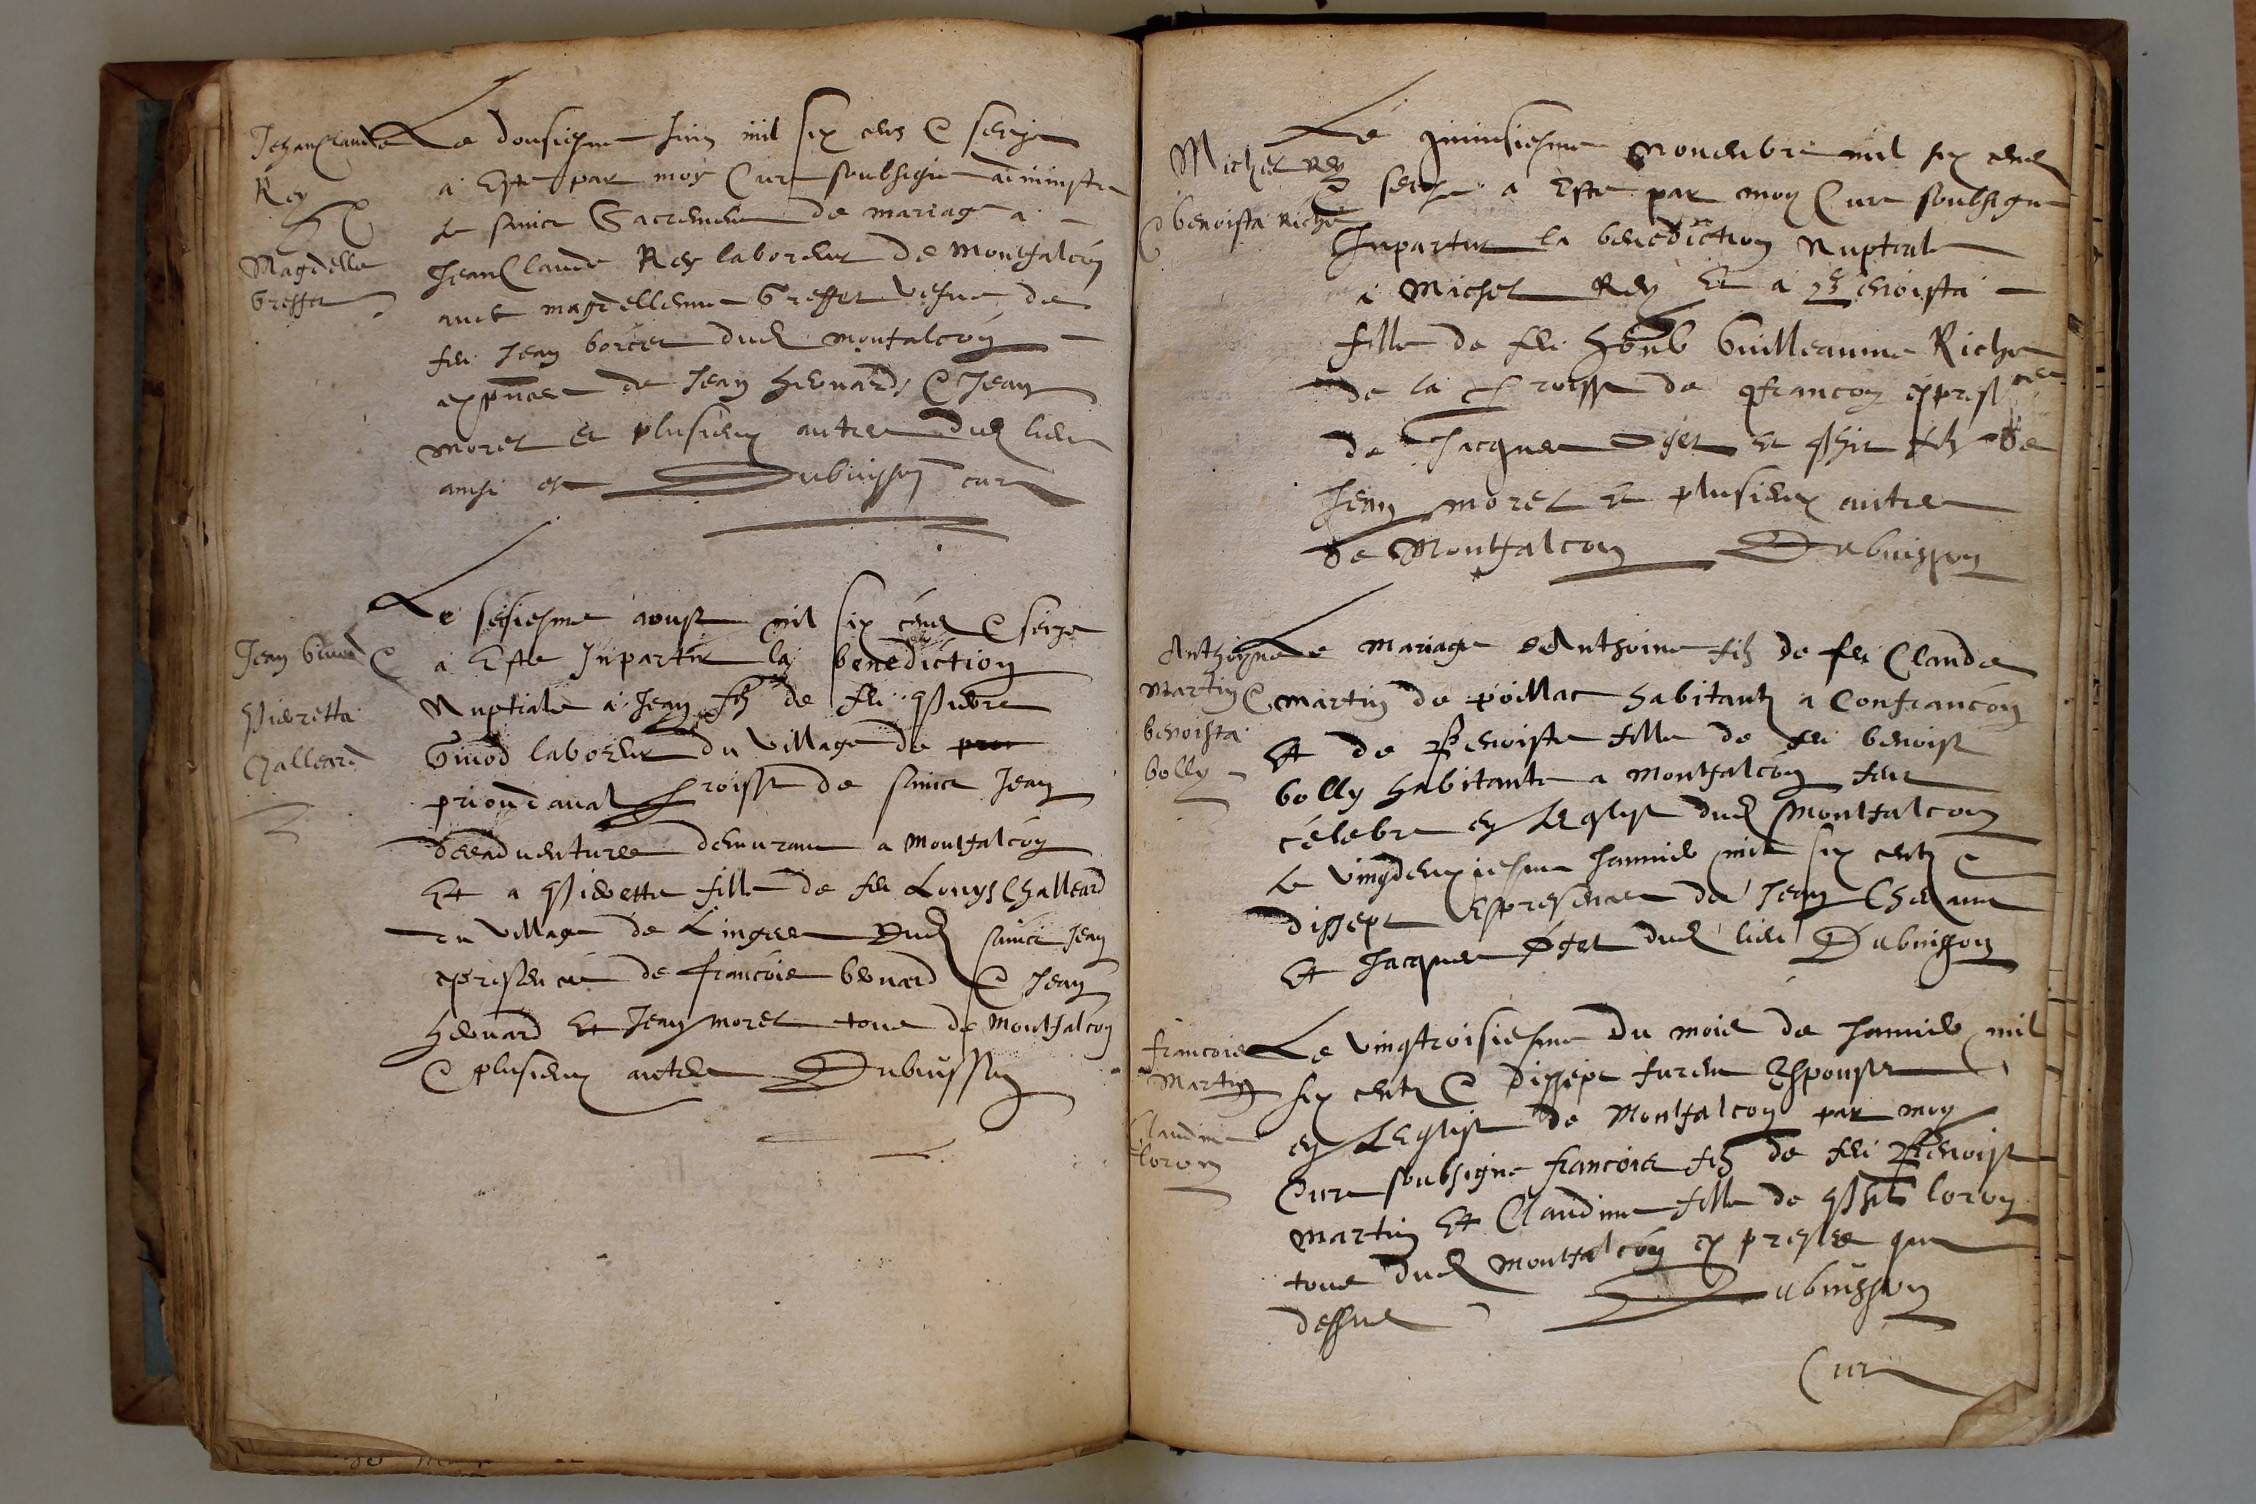 Jehan Claude
Rey
Et
Magdelle
Greffet
Le dousiesme Juin mil six cens & seize
a Este par moy Cure soubsigne administre
le sainct Sacrement de mariage a
Jean Claude Rey laboreur de Montfalcon
avec magdellenne Greffet vefve de
feu Jean borcet dud montfalcon
de Jean hevuard & Jean
morel et plusieurs autres dud lieu
ainsi est Dubuisson cure
Jean Guiod &
Pierretta
Challeard
Le sesiesme aoust mil six cens & seize
a Este Inpartir la benediction
Nuptiale a Jean fils de feu Pierre
Guiod laboreur du village de
priondaval Parroisse de sainct Jean
desadventures demurant a Montfalcon
Et a Pierretta fille de feu Louys Challeard
du village de Linges dud sainct Jean
presence de francois bevard & Jean
hevuard Et Jean morel tous de Montfalcon
& plusieurs autres Dubuisson
Michel Rey
& benoista Riche
Le quinsiesme Novembre mil six cens
& seize a Este par moy Cure soubsigne
Inpartir la benediction Nuptiale
a Michel Rey Et a Benoista
fille de feu honb Guilleaume Riche
de la Parroisse de
de Jacques oget Et fils de
Jean morel Et plusieurs autres
de Montfalcon Dubuisson
Anthoyne
Martin &
benoista
bolly
Le mariage d'Anthoine fils de feu Claude
martin de poillac habitant a Confrancon
Et de Benoista fille de feu benoist
bolly habitante a Montfalcon feut
celebre en L'Eglise dud Montfalcon
le vingdeuxiesme Janvier mil six cents &
dissept Espresence de Jean
Et Jacques oget dud lieu Dubuisson
francois
Martin
Claudine
loron
Le vingtroisiesme du mois de Janvier mil
six cents & dissept furent Espouses
en L'Eglise de Montfalcon par moy
Cure soubsigne francois fils de feu Benoist
martin Et Claudine fille de Phil loron
tous dud montfalcon que
dessus Dubuisson
Cure